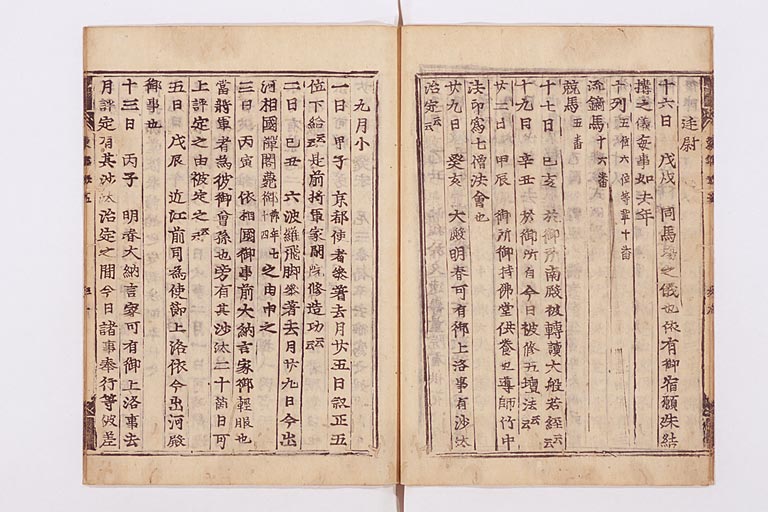 逹尉
十六日 戊戌 同馬場之儀也依有御宿願殊結
搆之儀毎事如去年
十列 五位六位等輩十番
流鏑馬 十六番
競馬 五番
十七日 己亥 於御所南殿被轉讀大般若経云云
十九日 辛丑 於御所自今日被修五壇法云云
廿二日 甲辰 御所御持佛堂供養也導師竹中
法印寫七僧法會也
廿九日 癸亥 大殿明春可有御上洛事有沙汰
治定云云
九月小
一日 甲子 京都使者參著去月廿五日叙正五
位下給云云是前將軍家閑院修造功云云
二日 己丑 六波羅飛脚參著去月廿九日今出
河相國禅閤薨御年七十四之由申之
三日 丙寅 依相國御事前大納言家御輕服也
當將軍者為彼御會孫也旁有其沙汰二十箇日可
上評定之由被定之云云
五日 戊辰 近江前司為使節上洛依今出河殿
御事也
十三日 丙子 明春大納言家可有御上洛事去
月評定有其沙汰治定之間今日諸事奉行等被差